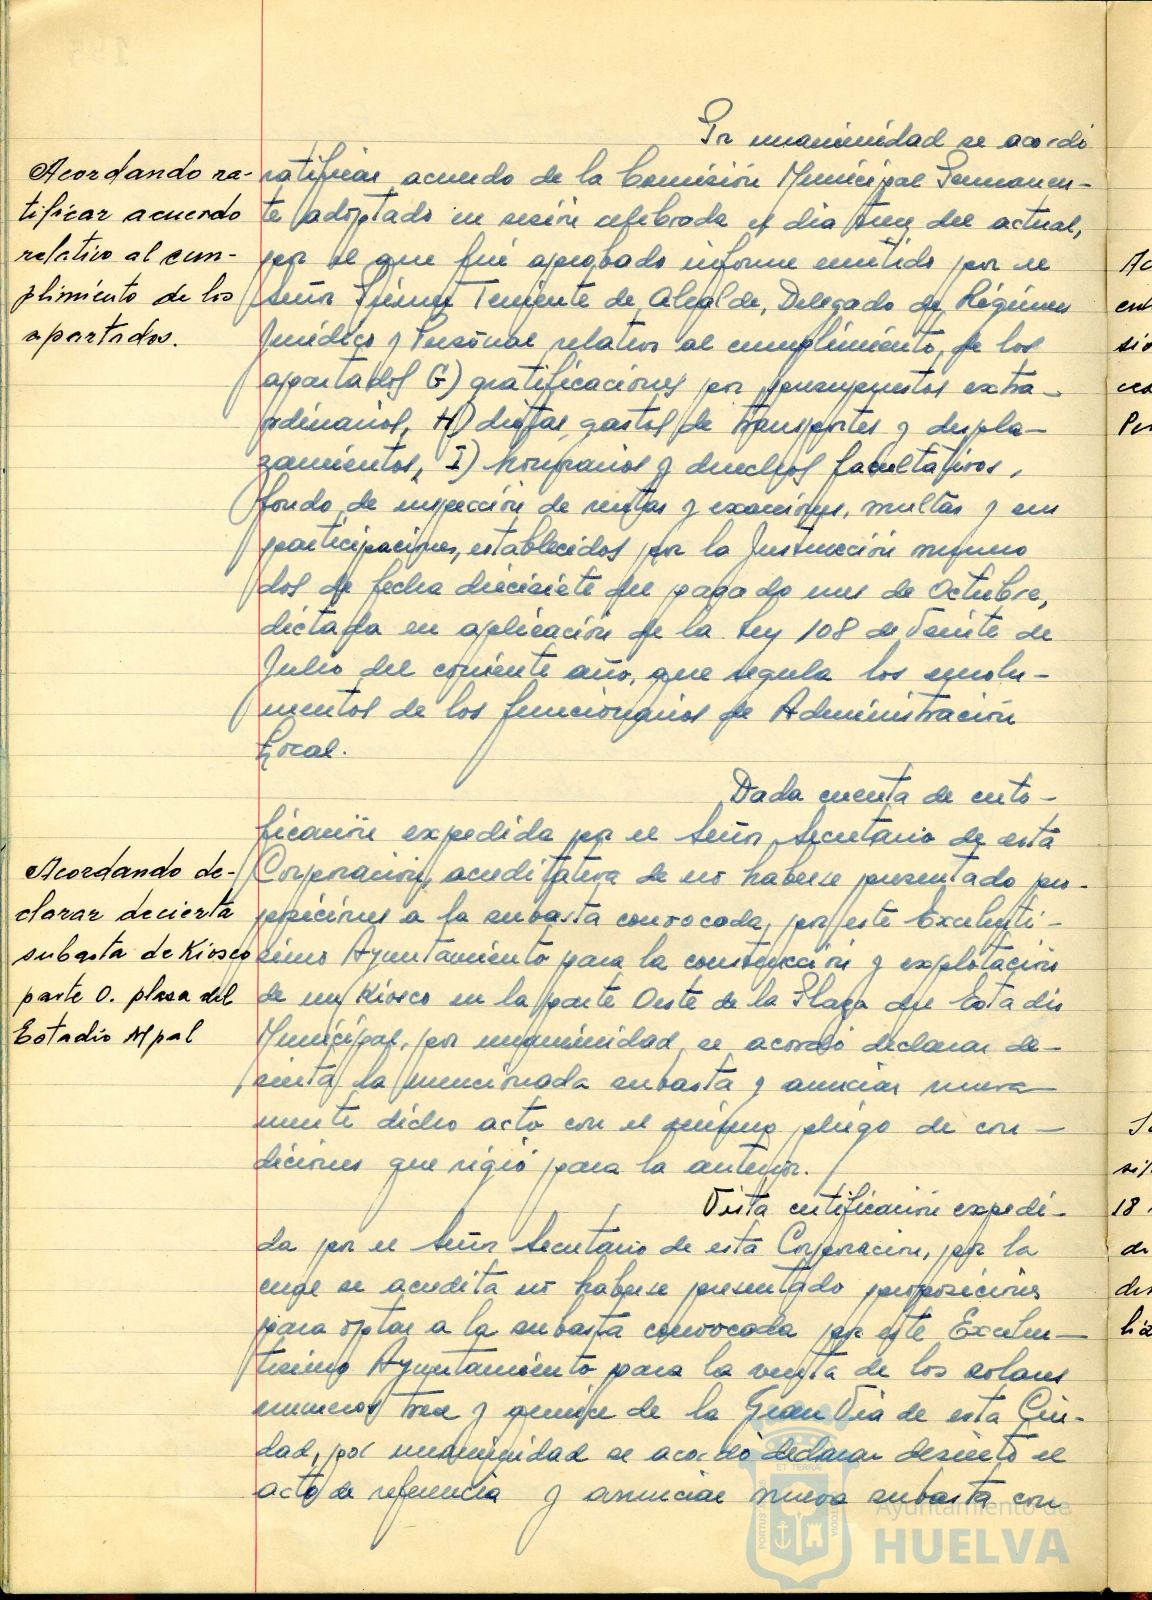 Por unanimidad se acordó
Acordando ra-
tificar acuerdo
relativo al cum-
plimiento de los
apartados.
ratificar acuerdo de la Comisión Municipal Permanen-
te adoptado en sesión celebrada el día trece del actual,
por el que fué aprobado informe emitido por el
Señor Primer Teniente de Alcalde, Delegado de Régimen
Jurídico y Personal relativo al cumplimiento de los
apartados G) gratificaciones por presupuestos extra-
ordinarios, H) dietas, gastos de transportes y despla-
zamientos, I) honorarios y derechos facultativos,
fondo de inspección de rentas y exacciones, multas y sus
participaciones, establecidos por la Instrucción número
dos de fecha diecisiete del pasado mes de Octubre,
dictada en aplicación de la Ley 108 de Veinte de
Julio del corriente año, que regula los emolu-
mentos de los funcionarios de Administración
Local.
Dada cuenta de certi-
ficación expedida por el Señor Secretario de esta
Acordando de-
clarar decierta
subasta de Kiosco
parte O. plaza del
Estadio Mpal
Corporación, acreditativa de no haberse presentado pro-
posiciones a la subasta convocada, por este Excelentí-
simo Ayuntamiento para la construcción y explotación
de un Kiosco en la parte Oeste de la Plaza del Estadio
Municipal, por unanimidad, se acordó declarar de-
sierta la mencionada subasta y anunciar nueva-
mente dicho acto con el mismo pliego de con-
diciones que rigió para la anterior.
Vista certificación expedi-
da por el Señor Secretario de esta Corporación, por la
cual se acredita no haberse presentado proposiciones
para optar a la subasta convocada por este Excelen-
tísimo Ayuntamiento para la venta de los solares
numeros trece y quince de la Gran Vía de esta Ciu-
dad, por unanimidad se acordó declarar desierto el
acto de referencia y anunciar nueva subasta con
Ayuntamiento de
HUELVA